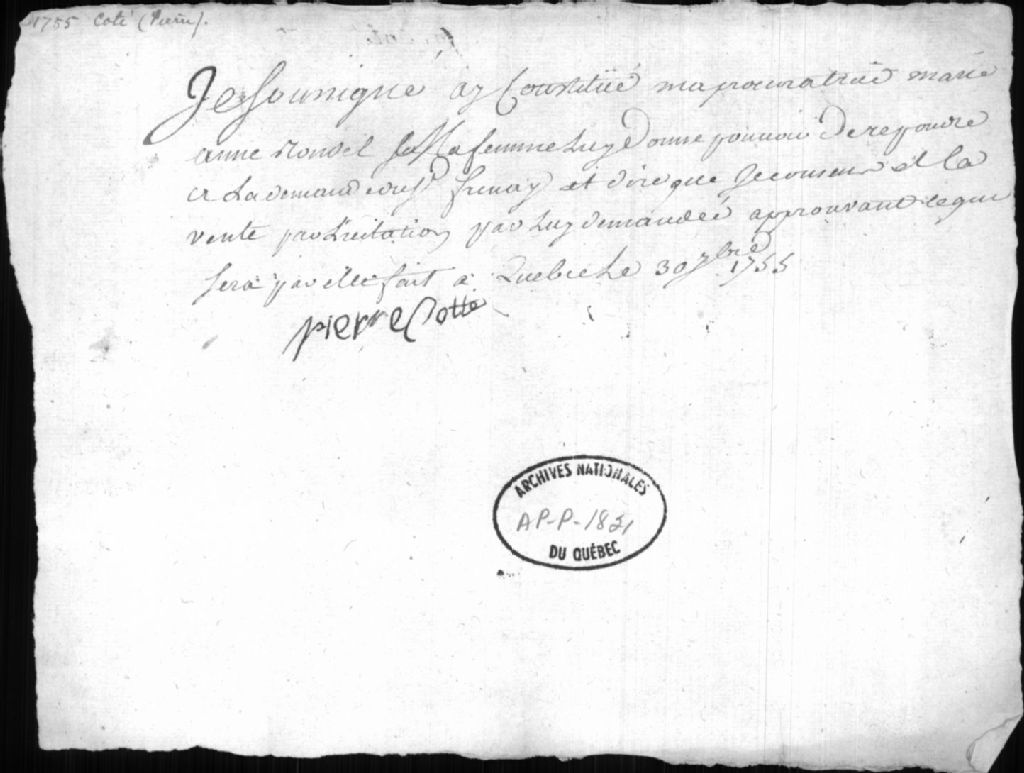 1755 Coté (Pierre).
Je Sousigné ay Constitué ma procuratrice marie
anne Rondel Ma femme Luy Donne pouvoir De repondre
a La demande du Sr frenay et dire que Je consens a la
vente par Licitation par Luy demandeé approuvant ce qui
Sera par elle fait a Quebec le 30 7bre 1755
pierre Cotte
ARCHIVES NATIONALES
AP-P-1831
DU QUÉBEC